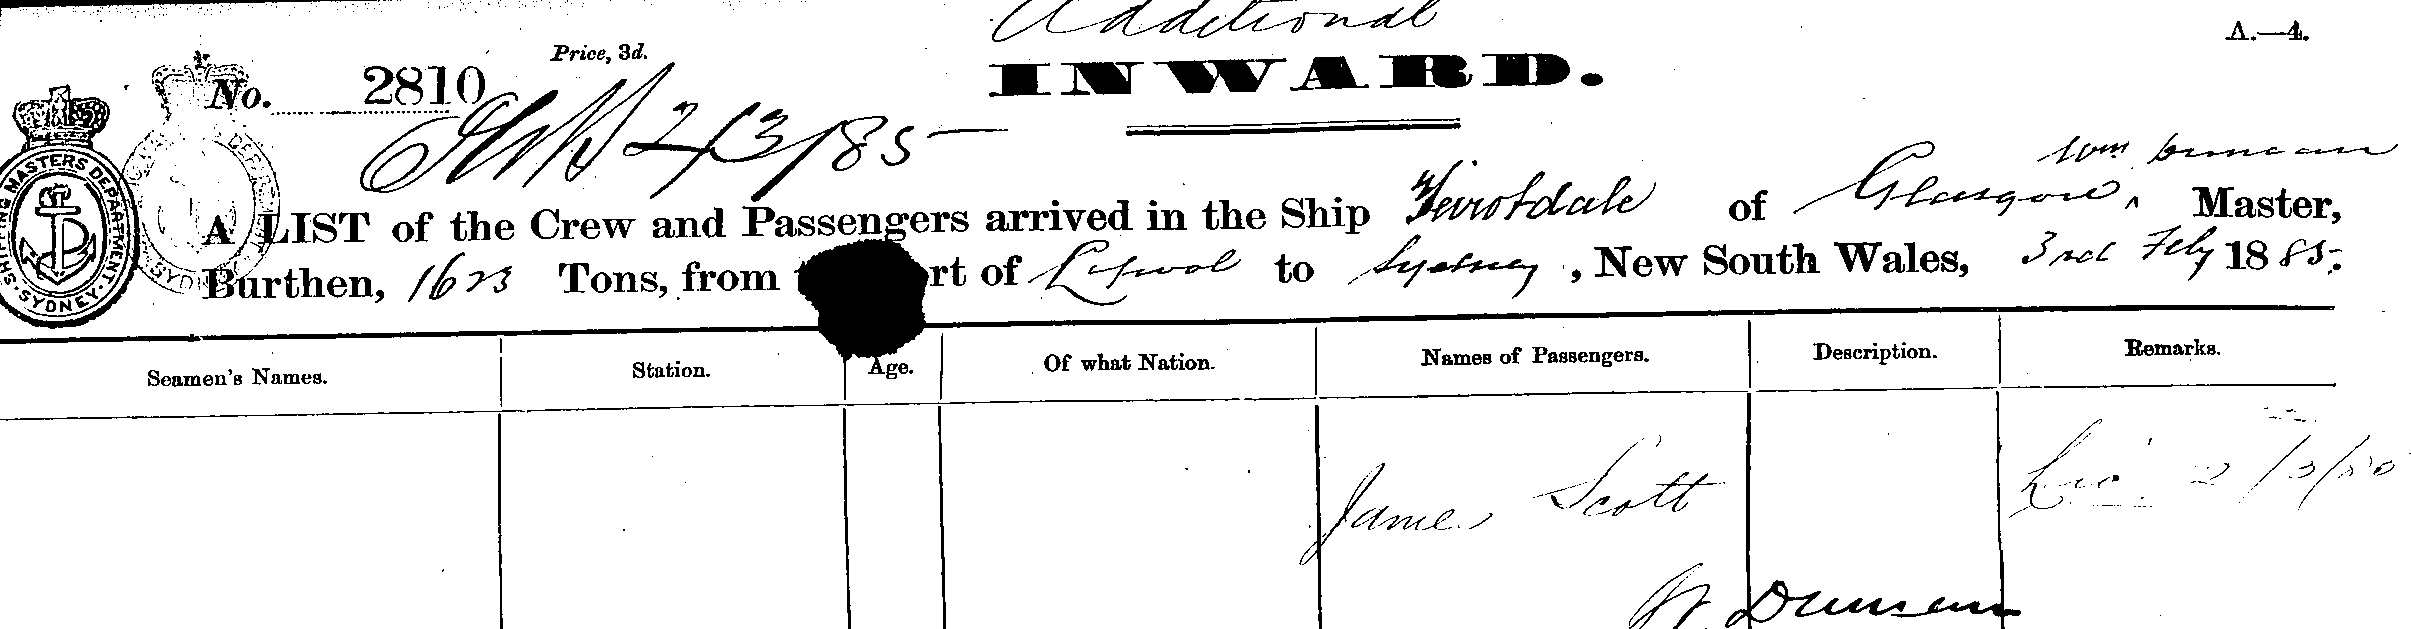 Additional
A.—4.
Price, 3d.
INWARD.
No. 2810
2/3/85
Wm Duncan
A LIST of the Crew and Passengers arrived in the Ship Teviotdale of Glasgow, Master,
Burthen, 1623 Tons, from rt of L'pool to Sydney, New South Wales, 3rd Feby 1885.
SHIPPING MASTERS DEPARTMENT SYDNEY
Seamen's Names. Station. Age. Of what Nation. Names of Passengers. Description. Remarks.
James Scott 2/3/85
W. Duncan